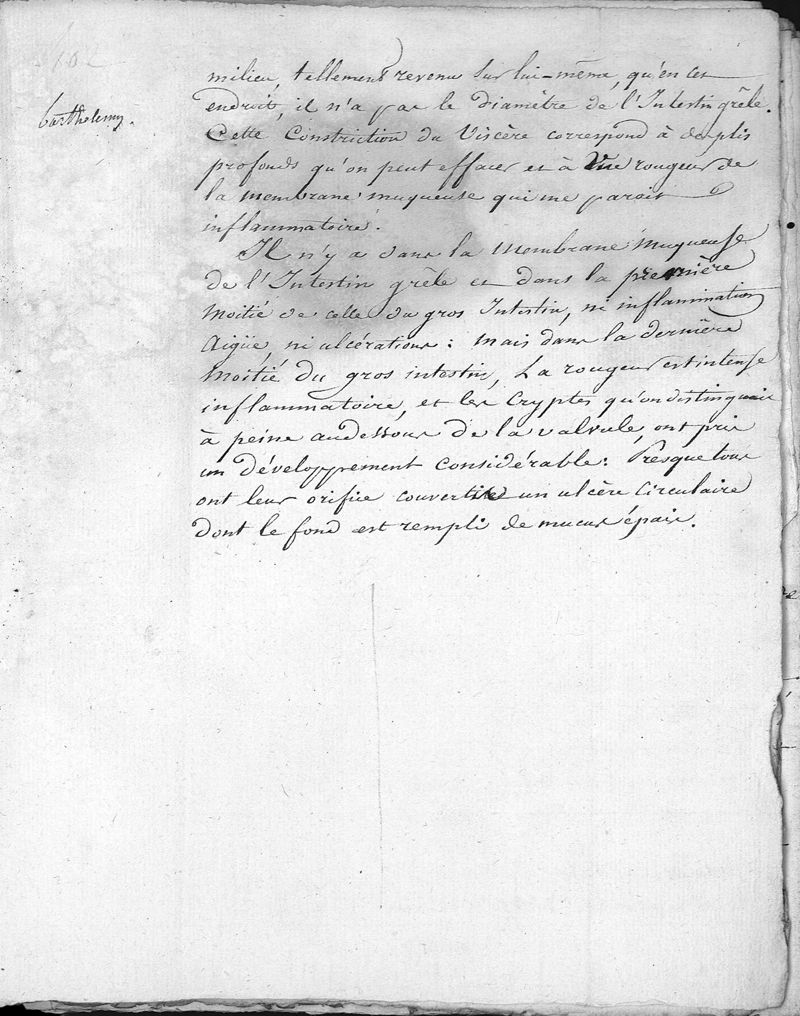 102
barthelemy.
milieu, tellement revenu sur lui-même, qu'en cet
endroit, il n'a pas le diamètre de l'Intestin grêle.
Cette Constriction du Viscère correspond à des plis
profonds qu'on peut effacer et à Une rougeur de
la membrane muqueuse qui me paroit
inflammatoire.
Il n'y a dans la membrane muqueuse
de l'Intestin grêle et dans la première
moitié de celle du gros Intestin, ni inflammation
Aigüe, ni ulcérations : mais dans la dernière
moitié du gros intestin, La rougeur est intense
inflammatoire, et les Cryptes qu'on distinguait
à peine audessous de la valvule, ont pris
un développement considérable : Presque tous
ont leur orifice converti en un ulcère Circulaire
dont le fond est rempli de mucus épais.